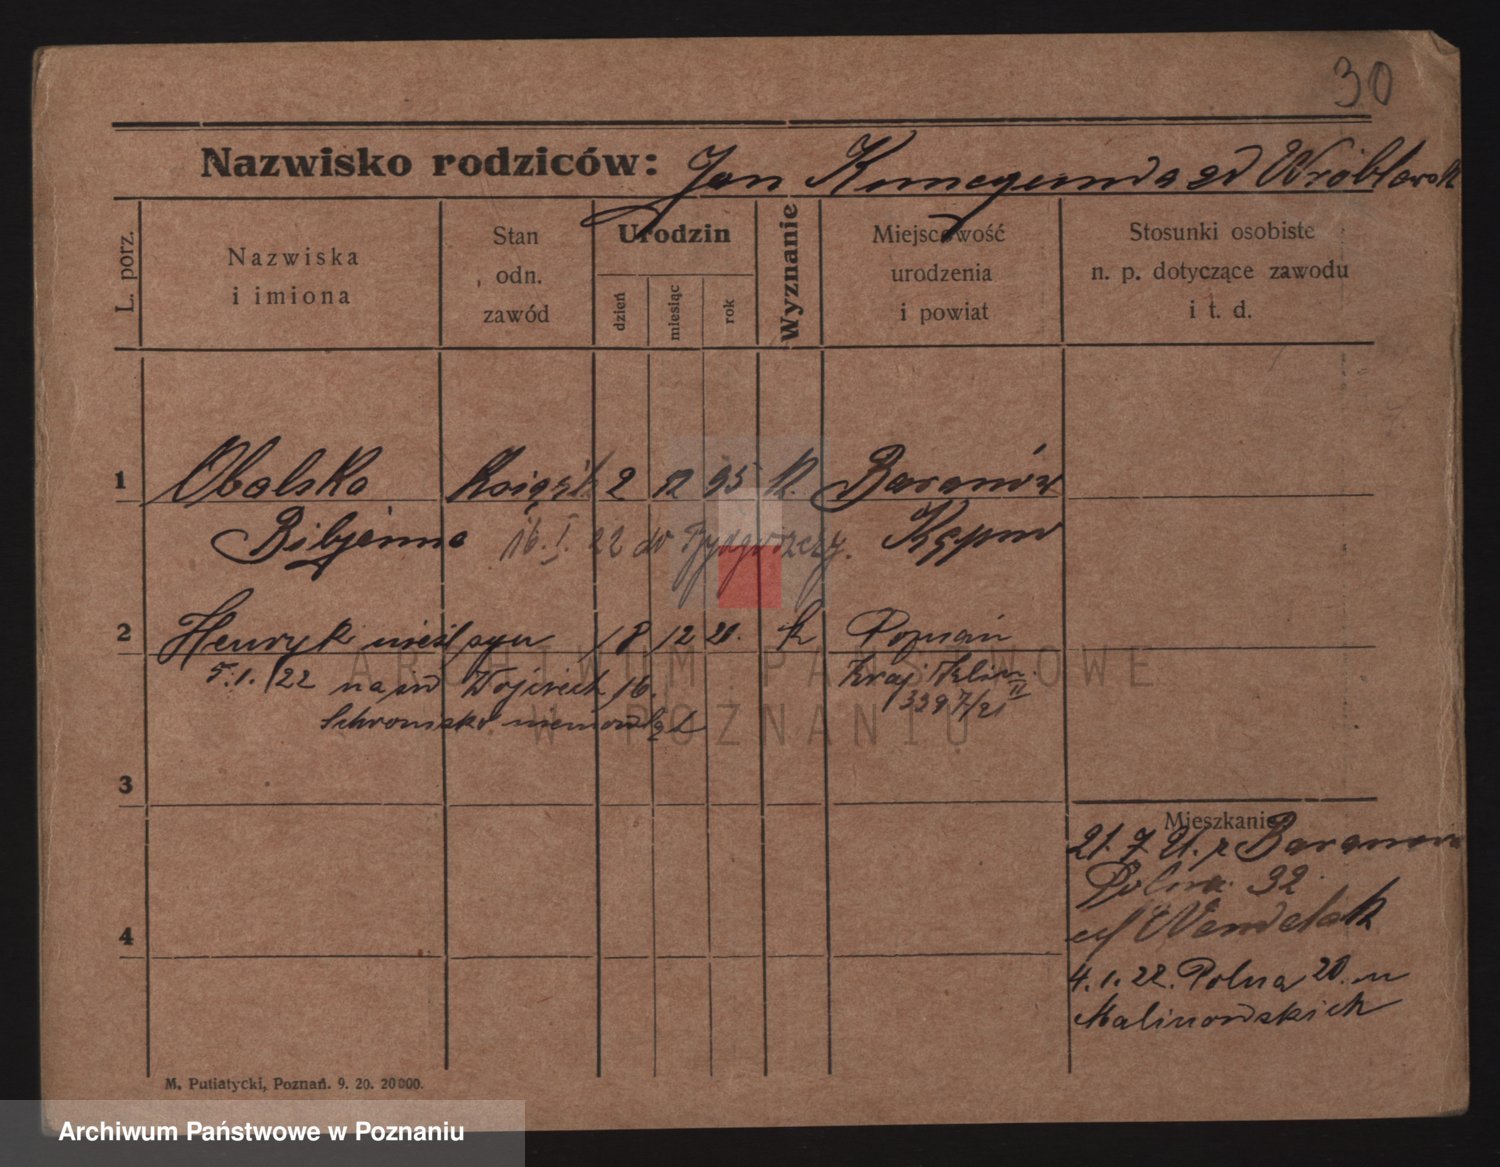 30
Nazwisko rodziców: Jan Kunegunda zd Wróblewsk
L. porz.
Nazwiska i imiona
Stan odn. zawód
Urodzin
dzień miesiąc rok
Wyznanie
Miejscowość urodzenia i powiat
Stosunki osobiste n. p. dotyczące zawodu i t. d.
1 Obalska 2 12 95 k. Baranów
Bibjanna 16. I. 22 do Bydgoszczy. Kępno
2 Henryk nieśl syn 18 12 20. k Poznań
5.1.22 Wojciech 16.
3397/21 II
Schronisko niemowląt
3
Mieszkanie
21. 7. 21. z Baranowa
Polna 32
4
4.1.22. Polna 20. u
Malinowskich
M. Putiatycki, Poznań. 9. 20. 20000.
ARCHIWUM PAŃSTWOWE
W POZNANIU
Archiwum Państwowe w Poznaniu